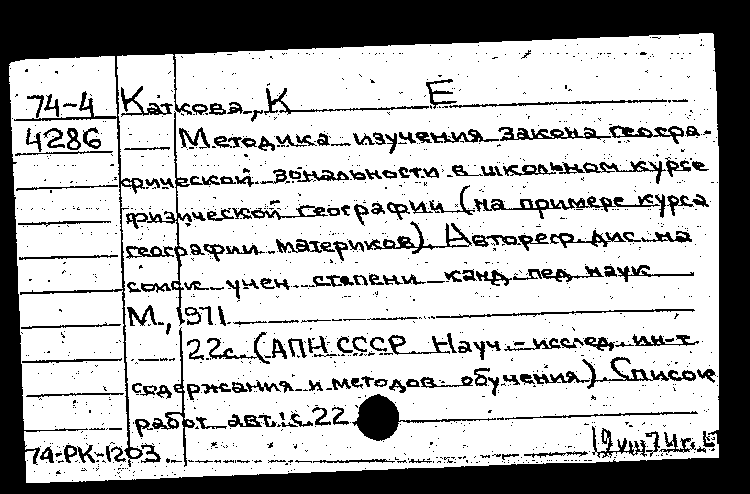 74-4 Каткова, К Е
4286 Методика изучения закона геогра-
фической зональности в школьном курсе
физической географии (на примере курса
географии материков). Автореф. дис. на
соиск учен степени канд. пед. наук
М., 1971
22с. (АПН СССР Науч.-исслед. ин-т
содержания и методов обучения). Список
работ авт.: с. 22
74-РК-1203. 19 VIII 74 г.